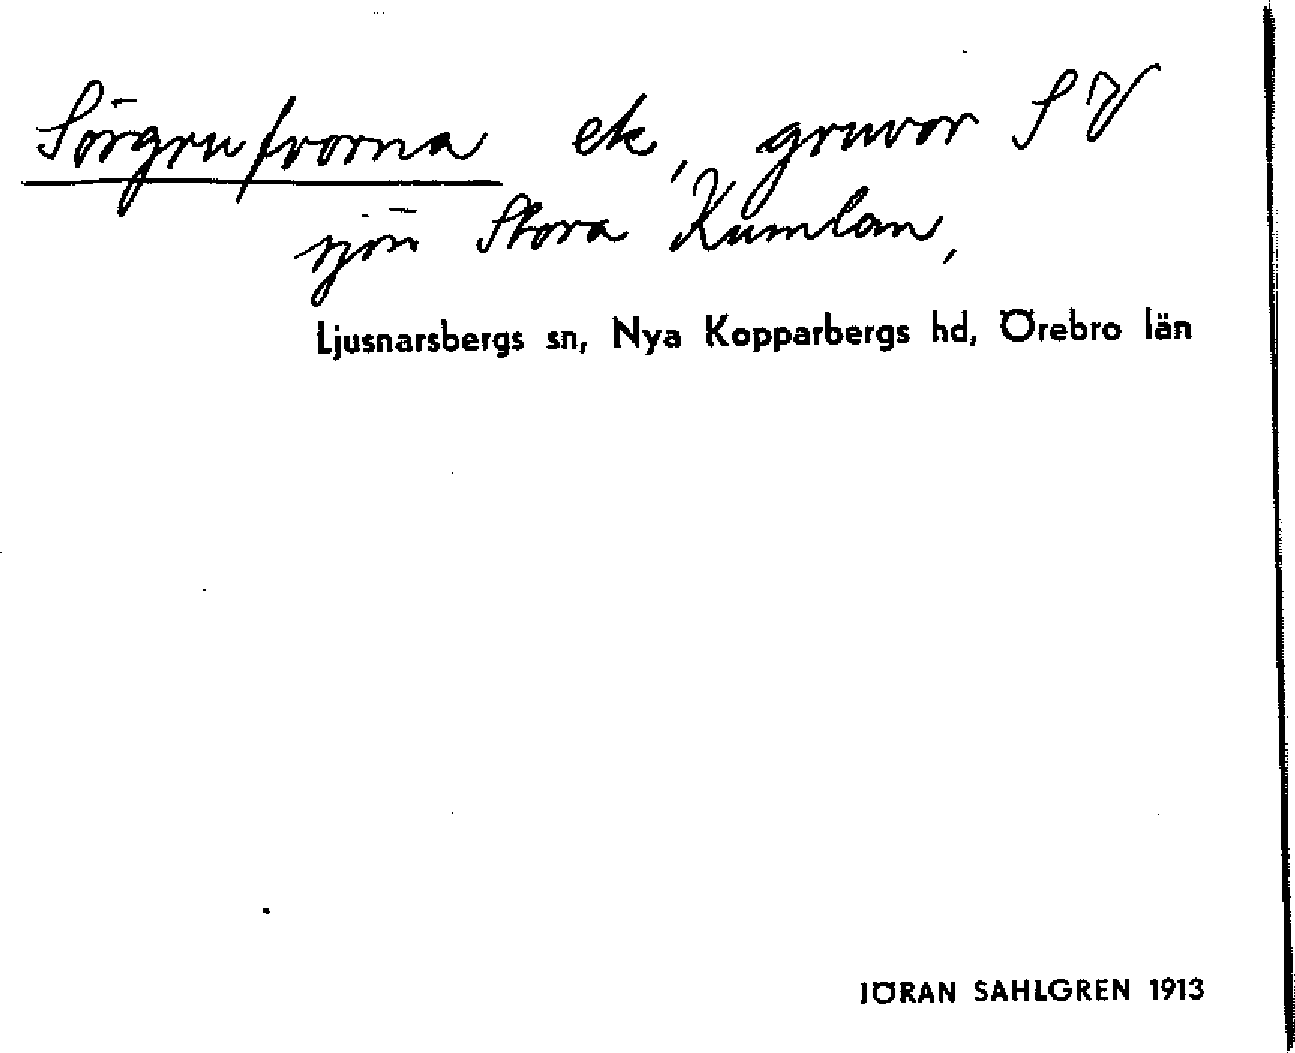 Sörgrufvorna ek, gruvor S V
sjön Stora Kumlan,
Ljusnarsbergs sn, Nya Kopparbergs hd, Örebro län
JÖRAN SAHLGREN 1913